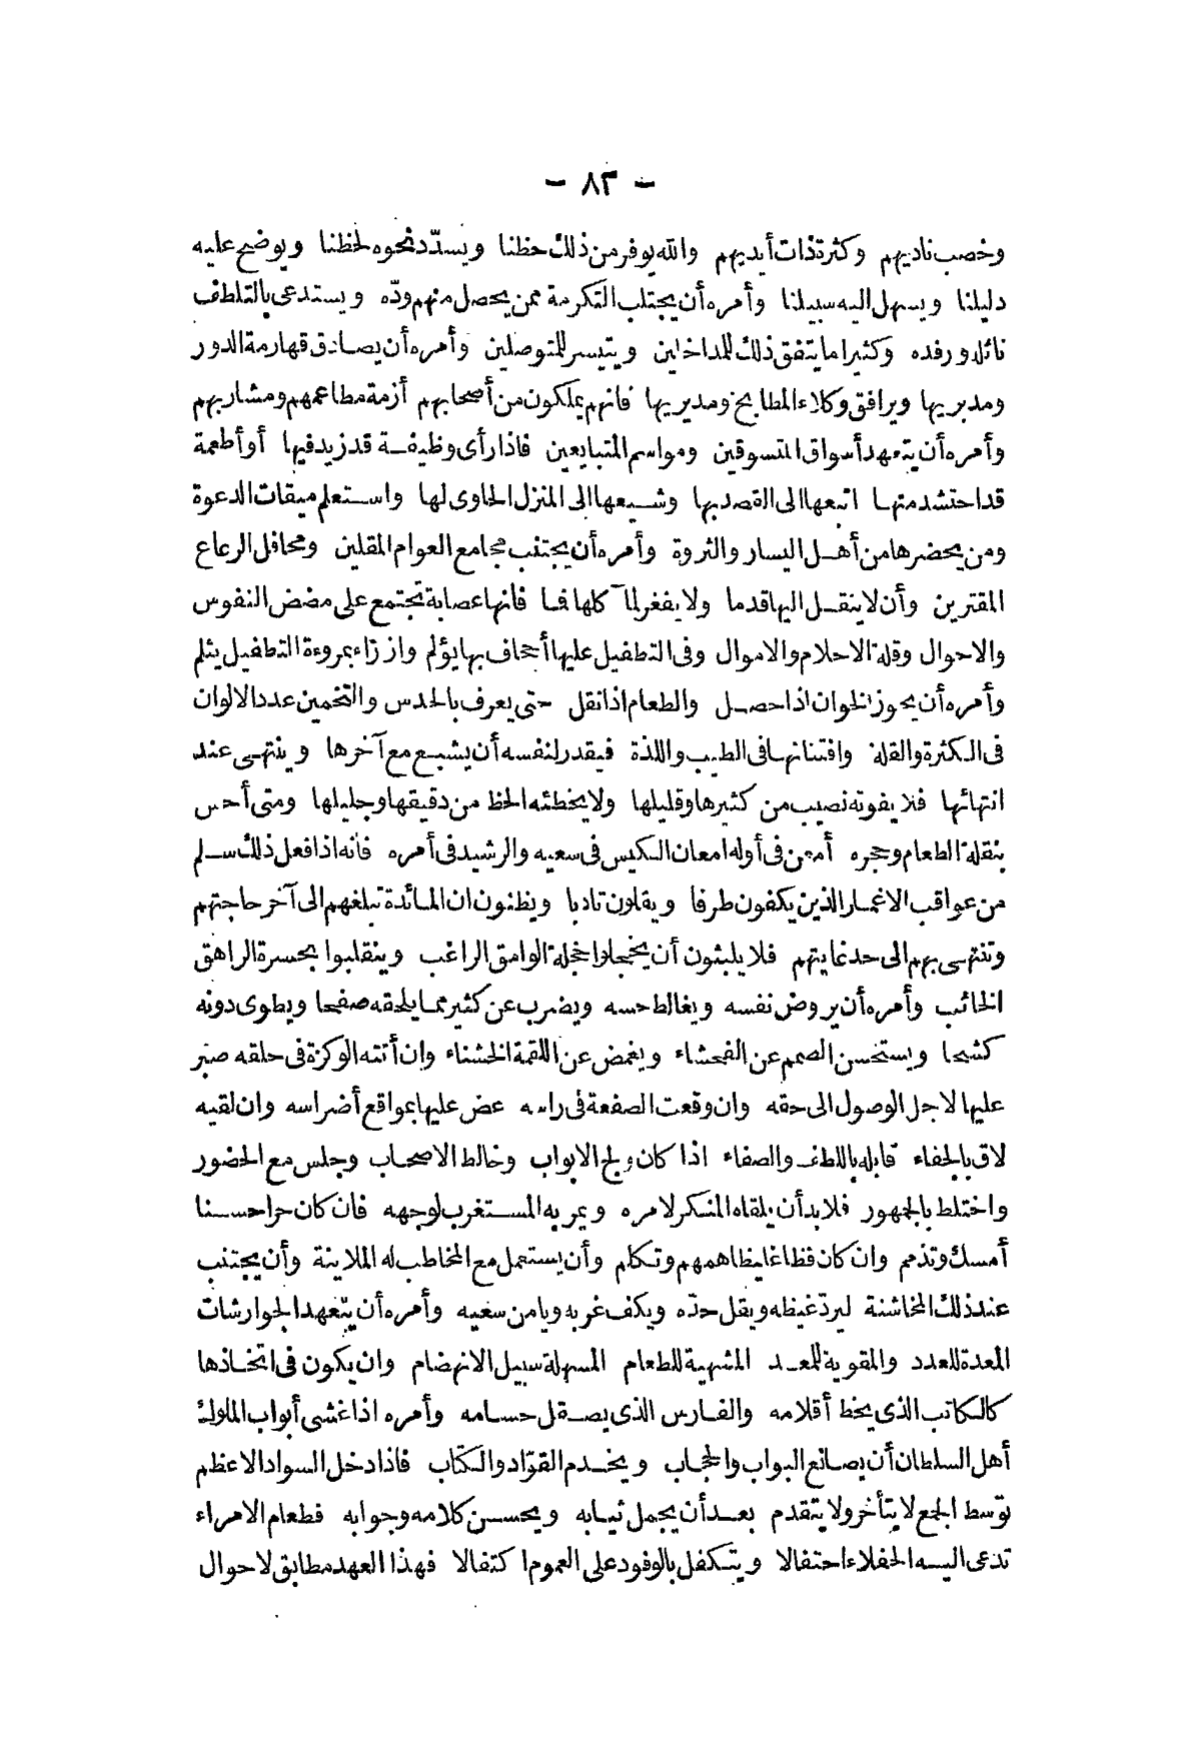 - ٨٣ -
وخصب ناديهم وكثرة ذات أيديهم والله يوفر من ذلك حظنا ويسدّد نحوه لحظنا ويوضح عليه
دليلنا ويسهل اليه سبيلنا وأمره أن يجتلب التكرمة ممن يحصل منهم ودّه ويستدعى بالتلطف
نائله ورفده وكثيرا ما يتفق ذلك للمداخلين ويتيسر للمتوصلين وأمره أن يصادق قهارمة الدور
ومدبريها ويرافق وكلاء المطابخ ومديريها فانهم يملكون من أصحابهم أزمة مطاعمهم ومشاربهم
وأمره أن يتعهد أسواق المتسوقين ومواسم المتبايعين فاذا رأى وظيفة قد زيد فيها أو أطعمة
قد احتشد منها اتبعها الى القصد بها وشيعها الى المنزل الحاوى لها واستعلم ميقات الدعوة
ومن يحضرها من أهل اليسار والثروة وأمره أن يجتنب مجامع العوام المقلين ومحافل الرعاع
المقترين وأن لا ينقل اليها قدما ولا يفغر لمآكلها فما فانها عصابة تجتمع على مضض النفوس
والاحوال وقلة الاحلام والاموال وفى التطفيل عليها أجحاف بها يؤلم وازراء بمروءة التطفيل يثلم
وأمره أن يحوز الخوان اذا حصل والطعام اذا نقل حتى يعرف بالحدس والتخمين عدد الالوان
فى الكثرة والقلة وافتنانها فى الطيب واللذة فيقدر لنفسه أن يشبع مع آخرها وينتهى عند
انتهائها فلا يفوته نصيب من كثيرها وقليلها ولا يخطئه الحظ من دقيقها وجليلها ومتى أحس
بنقلة الطعام وحجره أمعن فى أوله امعان الكيس فى سعيه والرشيد فى أمره فانه اذا فعل ذلك سلم
من عواقب الاغمار الذين يكفون طرفا ويقلون تادبا ويظنون ان المائدة تبلغهم الى آخر حاجتهم
وتنتهى بهم الى حد غايتهم فلا يلبثون أن يخجلوا خجلة الوامق الراغب وينقلبوا بحسرة الراهق
الخائب وأمره أن يروض نفسه ويغالط حسه ويضرب عن كثير مما يلحقه صفحا ويطوى دونه
كشحا ويستحسن الصمم عن الفحشاء ويغمض عن اللقمة الخشناء وان أتته الوكزة فى حلقه صبر
عليها لاجل الوصول الى حقه وان وقعت الصفعة فى راسه عض عليها بمواقع أضراسه وان لقيه
لاق بالجفاء قابله باللطف والصفاء اذا كان ولج الابواب وخالط الاصحاب وجلس مع الحضور
واختلط بالجمهور فلا بد أن يلقاه المنكر لامره ويمر به المستغرب لوجهه فان كان حرا حسنا
أمسك وتذمم وان كان فظا غليظا همهم وتكلم وأن يستعمل مع المخاطب له الملاينة وأن يجتنب
عند ذلك المخاشنة ليرد غيظه ويقل حدّه ويكف غربه ويامن سعيه وأمره أن يتعهد الجوارشات
المعدة للعدد والمقوية للمعد المشهية للطعام المسهلة سبيل الانهضام وان يكون فى اتخاذها
كالكاتب الذى يخط أقلامه والفارس الذى يصقل حسامه وأمره اذا غشى أبواب الملوك
أهل السلطان أن يصانع البواب والحجاب ويخدم القوّاد والكتاب فاذا دخل السواد الاعظم
توسط الجمع لا يتأخر ولا يتقدم بعد أن يجمل ثيابه ويحسن كلامه وجوابه فطعام الامراء
تدعى اليه الحفلاء احتفالا ويتكفل بالوفود على العموم اكتفالا فهذا العهد مطابق لاحوال